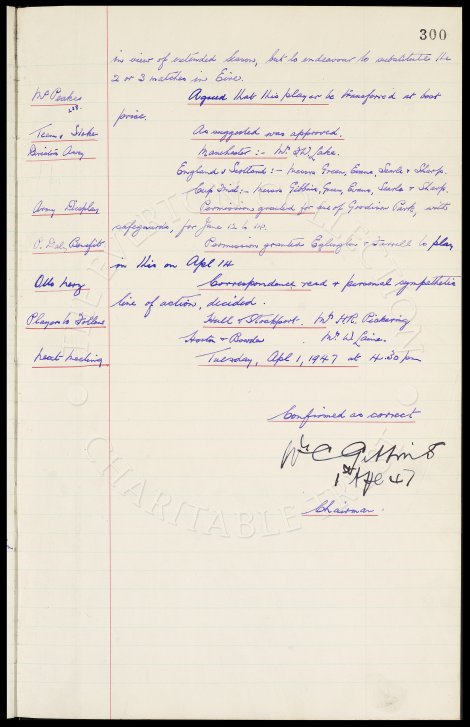 300
in view of extended season, but to endeavour to substitute the
2 or 3 matches in Eire.
Mr Peakes Agreed that this player be transferred at best
228.
price.
Team v Stoke As suggested was approved.
Directors Away Manchester :- Mr. Lake.
England v Scotland :- Messrs Green, Evans, Searle & Sharp.
Cup Final :- Messrs Gibbins, Green, Evans, Searle & Sharp.
Army Display Permission granted for use of Goodison Park, with
safeguards, for June 12 to 14.
P. Daly Benefit Permission granted Eglington & Farrell to play
in this on Apl 14
Correspondence read & personal sympathetic
line of action, decided.
Players to Follow Hull v Stockport. Mr H.R. Pickering
Mr W.
Next Meeting Tuesday, Apl 1, 1947 at 4.30 pm
Confirmed as correct
Wm C Gibbins
1st Apl 47
Chairman.
CHARITABLE